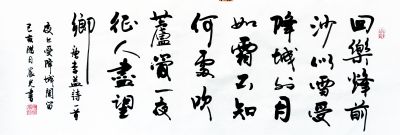 回樂烽前
沙似雪受
降城外月
如霜不知
何處吹
蘆管一夜
征人盡望
鄉 唐李益詩一首
夜上受降城聞笛
己亥 月 書